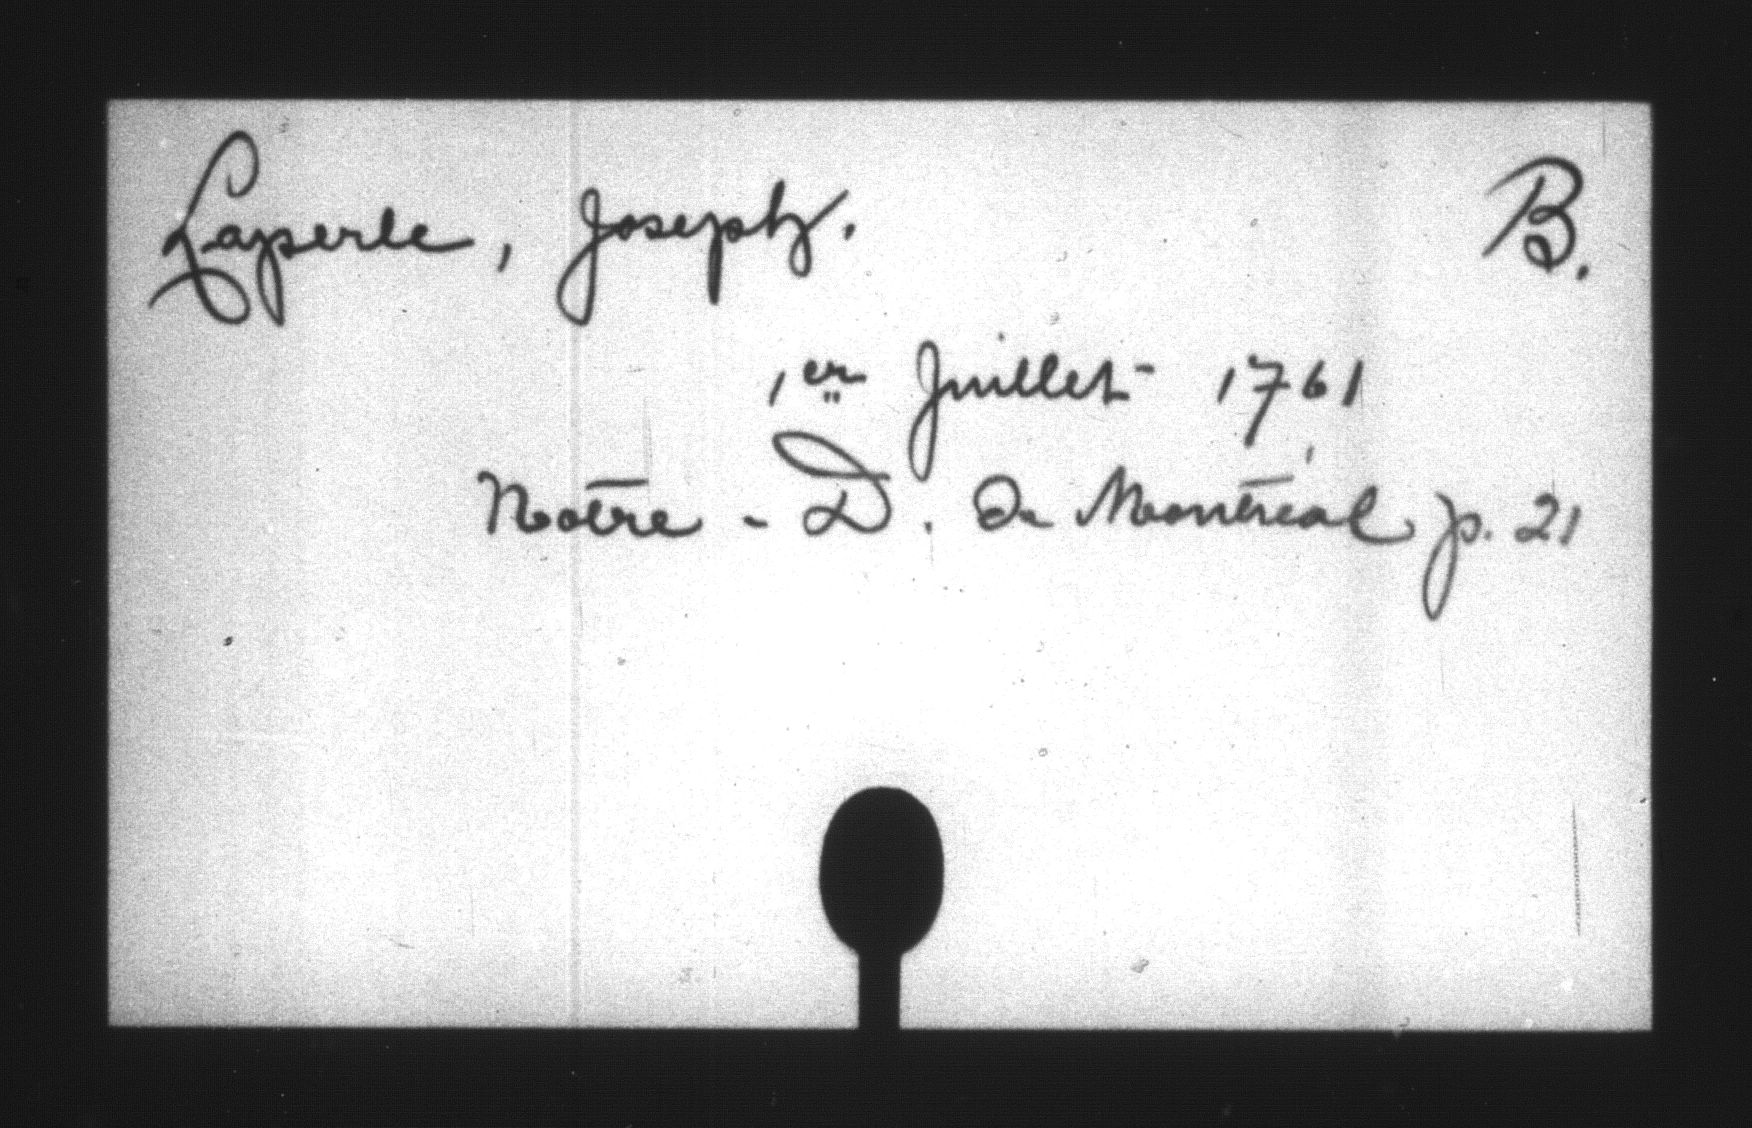 Laperle, Joseph. B.
1er Juillet - 1761
Notre - D. de Montréal p. 21